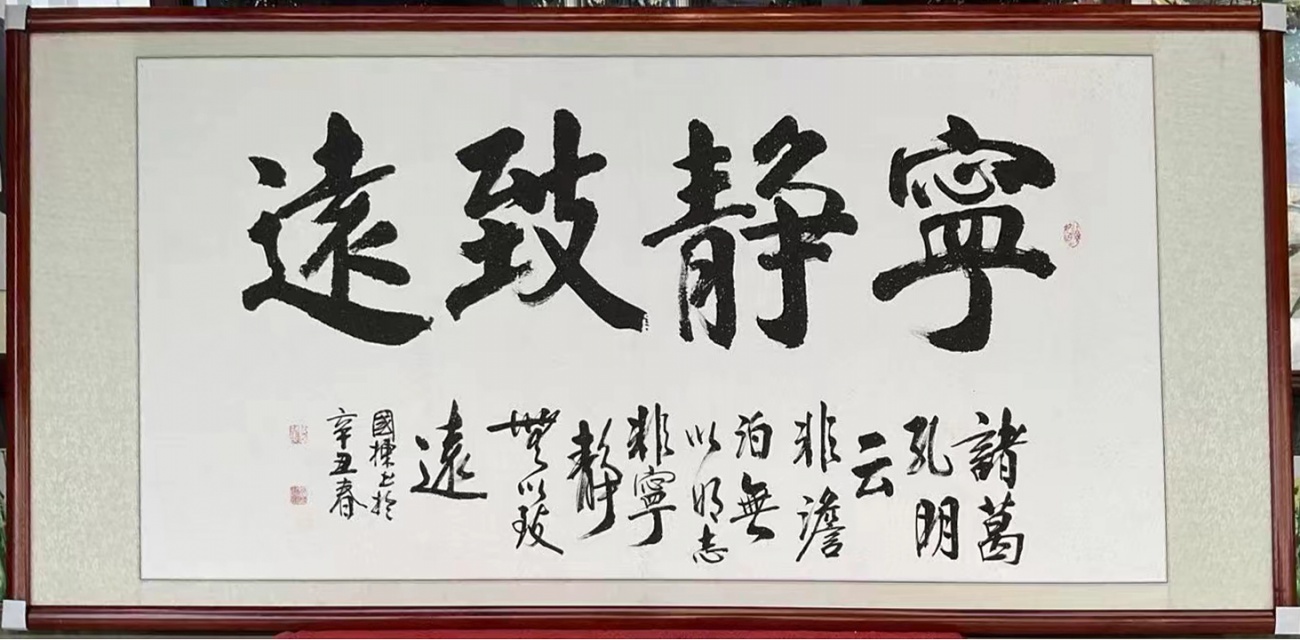 寧静致遠
諸葛
孔明
云
非澹
泊無
以明志
非寧
静
無以致
遠
國棟書於
辛丑春